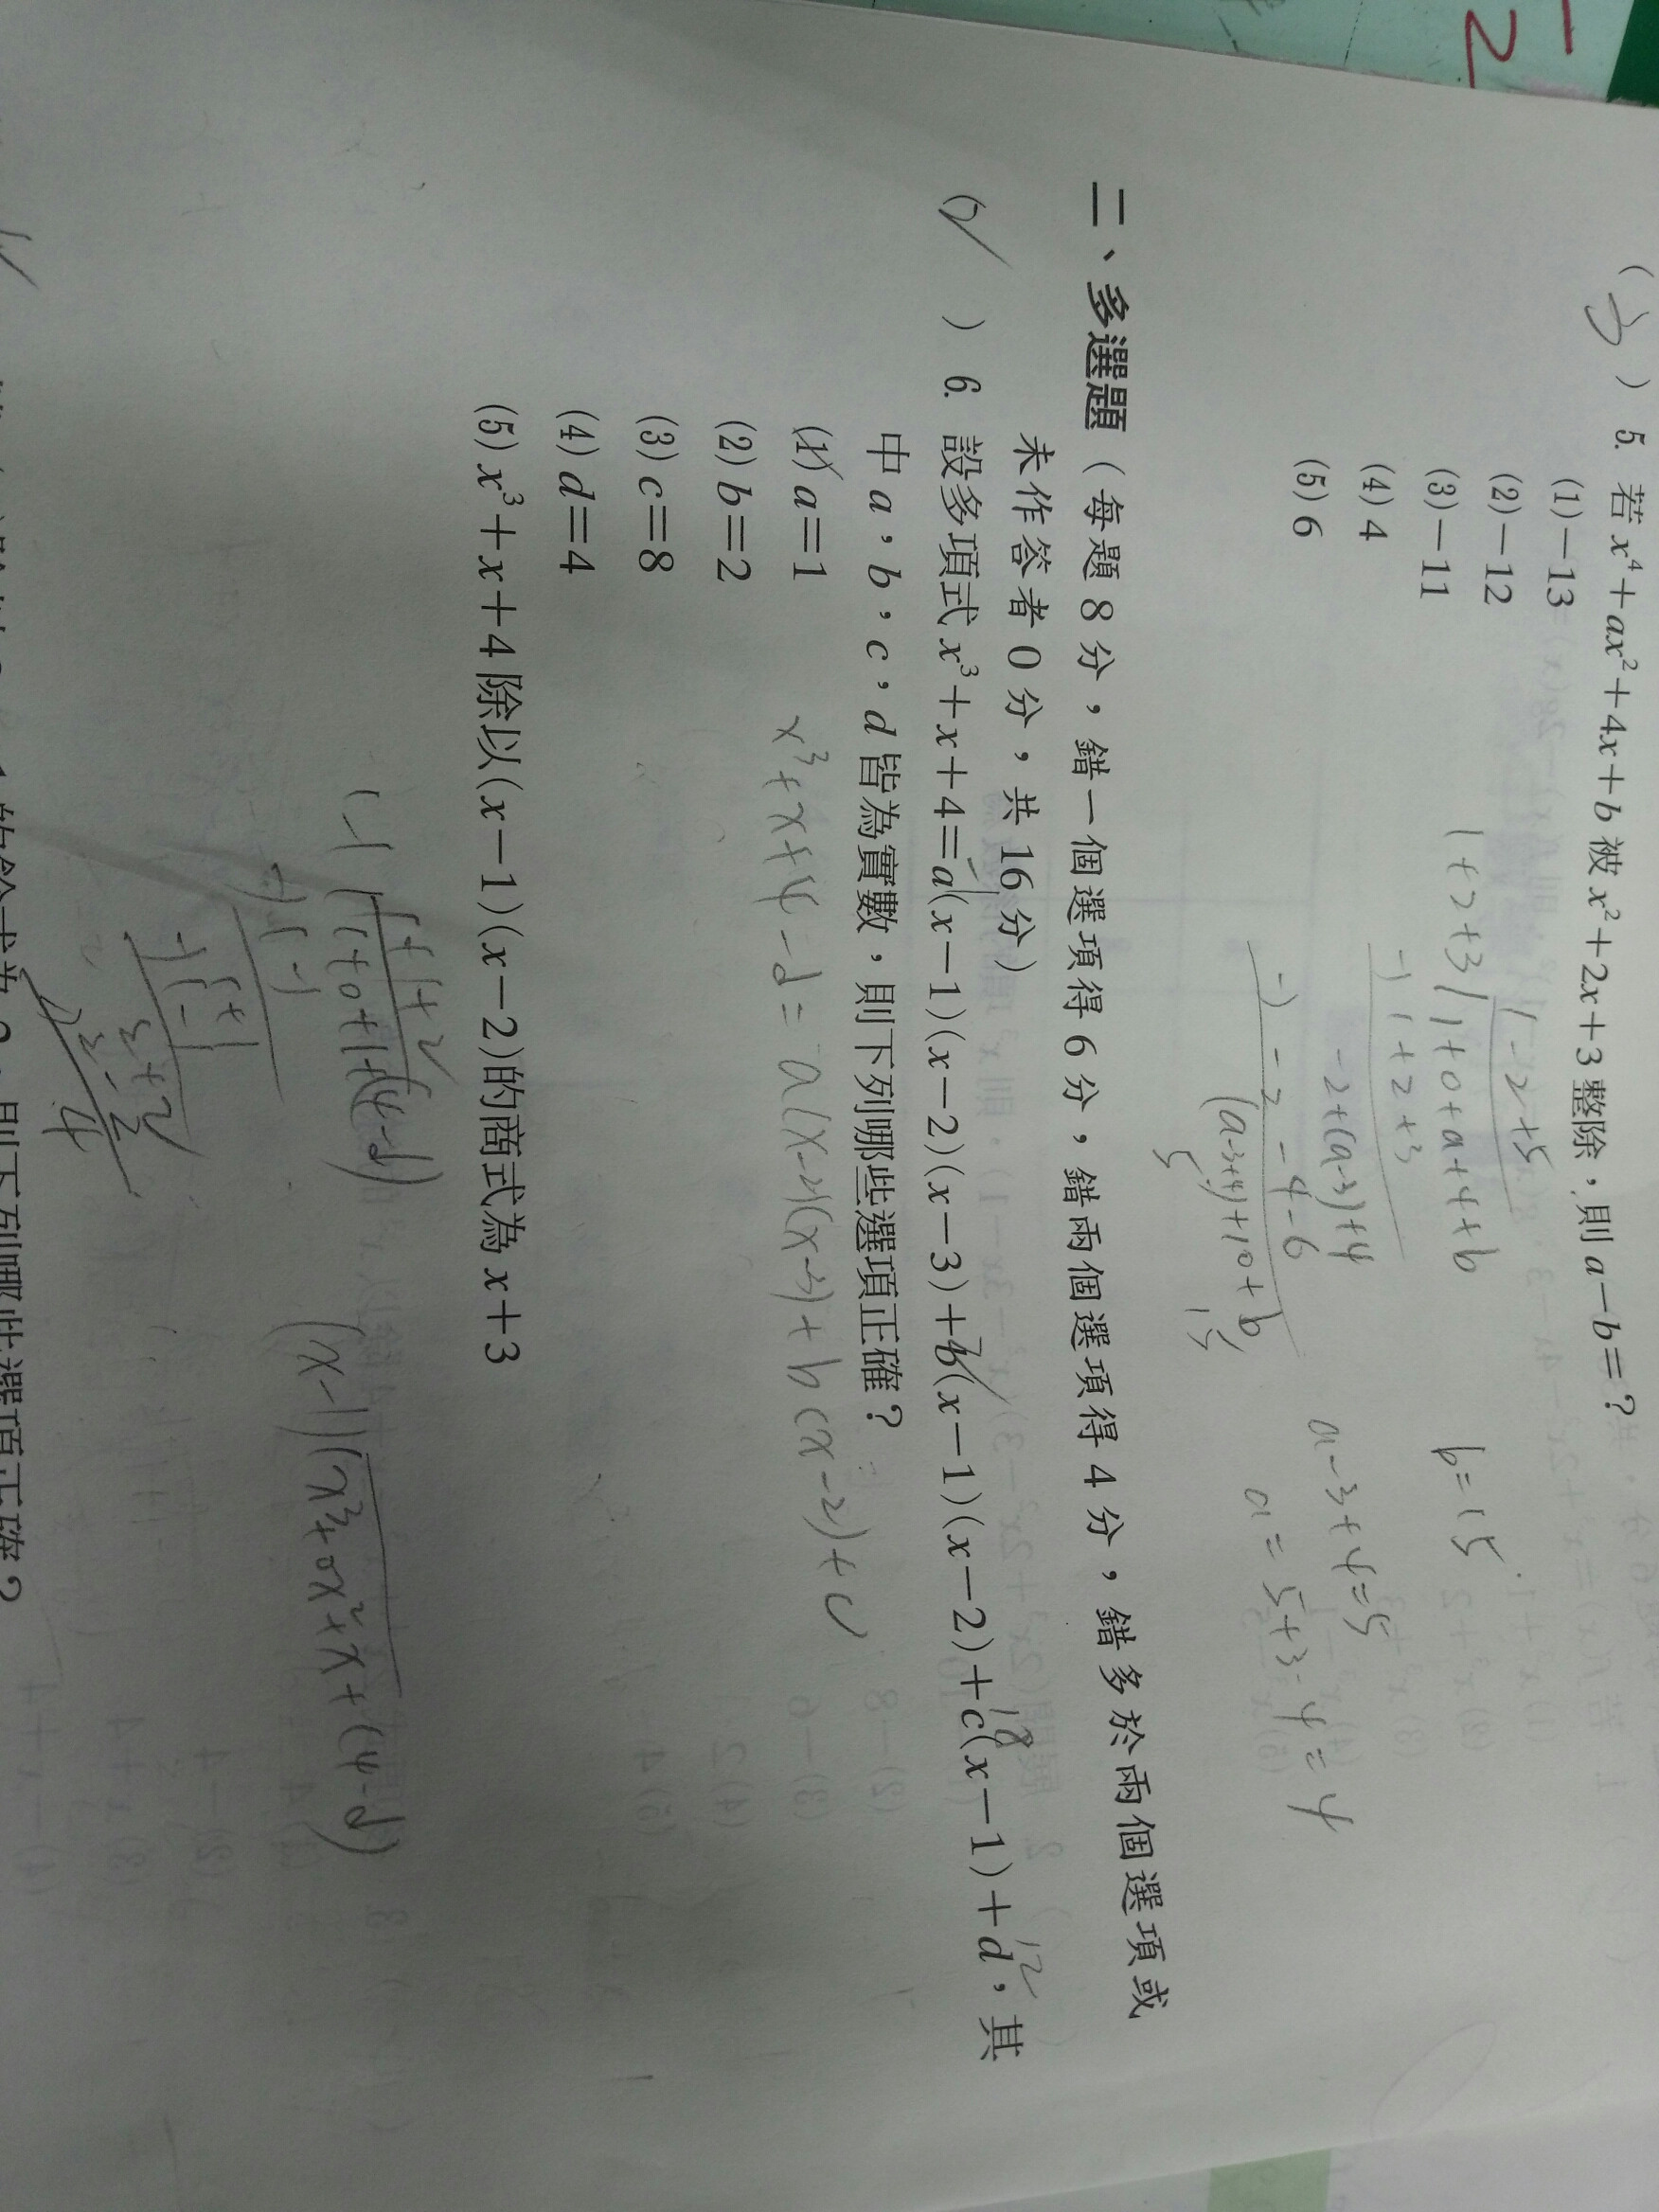 -2
( ) 5. 若 x⁴+ax²+4x+b 被 x²+2x+3 整除，則 a−b=?
(1)−13
(2)−12
(3)−11
(4) 4
(5) 6
1-2+5
1+2+3 1+0+a+4+b
-) 1+2+3
-2+(a-3)+4
-) -2 -4 -6
(a-3+4)+10+b
5 15
b=15
a-3+4=5
a=5+3-4=4
二、多選題（每題 8 分，錯一個選項得 6 分，錯兩個選項得 4 分，錯多於兩個選項或
未作答者 0 分，共 16 分）
) 6. 設多項式 x³+x+4=a(x−1)(x−2)(x−3)+b(x−1)(x−2)+c(x−1)+d，其
中 a，b，c，d 皆為實數，則下列哪些選項正確？
(1) a=1
(2) b=2
(3) c=8
(4) d=4
x³+x+4-d=a(x-2)(x-3)+b(x-2)+c
(5) x³+x+4 除以(x−1)(x−2)的商式為 x+3
1+1+2
1-1 1+0+1+(4-d)
-) 1-1
1+1
-) 1-1
2+
(x-1) (x³+0x²+x+(4-d)
則下列哪些選項正確？